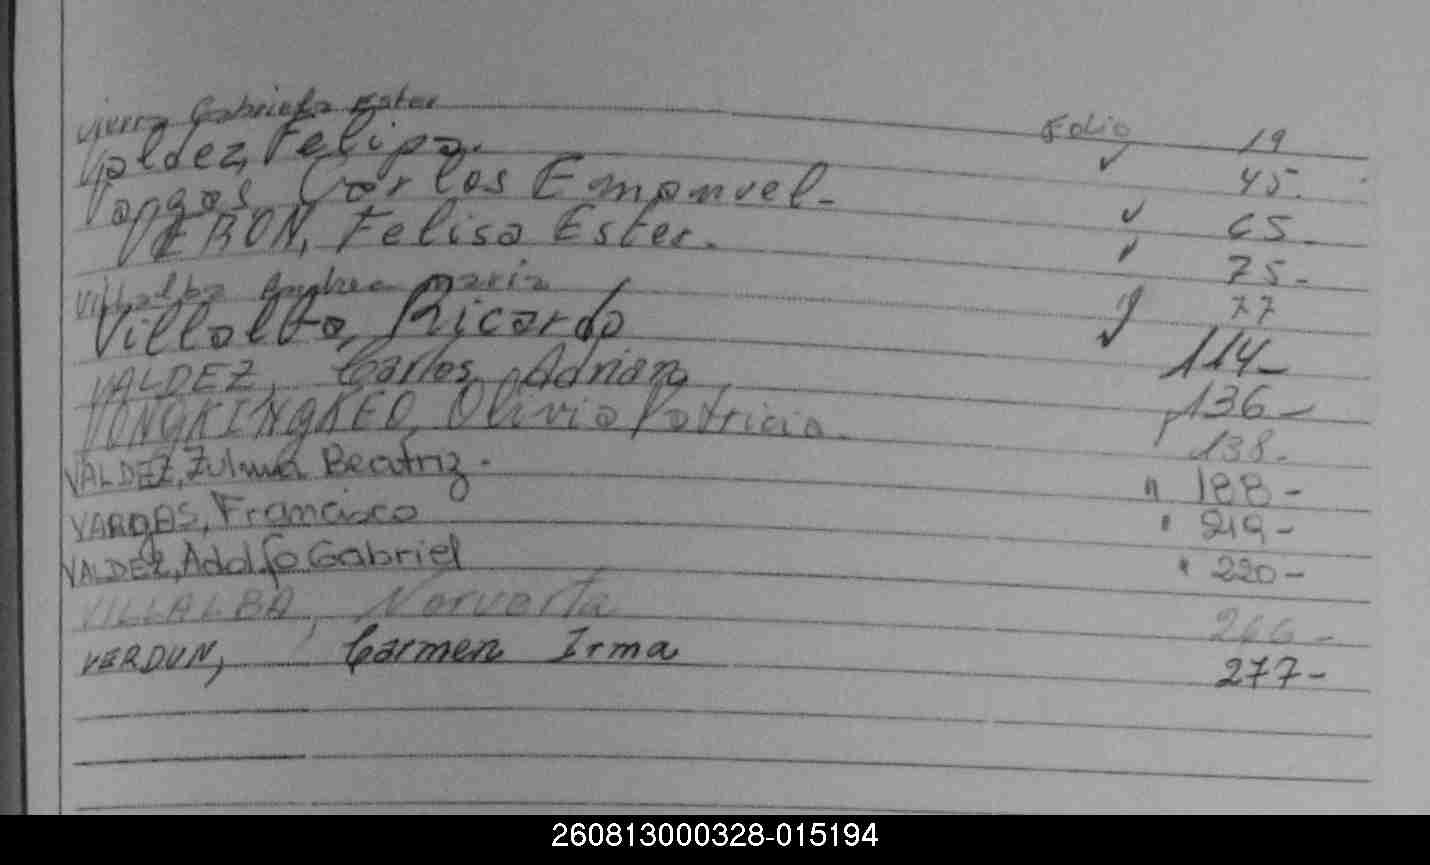 Vierra Gabriela Ester Folio 19
Valdez, Felipa. ✓ 45.
Vargas, Carlos Emanuel. ✓ 65.
VERON, Felisa Ester. ✓ 75-
Villalba Andrea Maria " 77
Villalba, Ricardo ✓ 114-
VALDEZ, Carlos Adrian, 136-
VONGKINGKEO, Olivia Patricia. 138.
VALDEZ, Zulma Beatriz. " 188-
VARGAS, Francisco " 219-
VALDEZ, Adolfo Gabriel " 220-
VILLALBA, Norverta 266-
VERDUN, Carmen Irma 277-
260813000328-015194